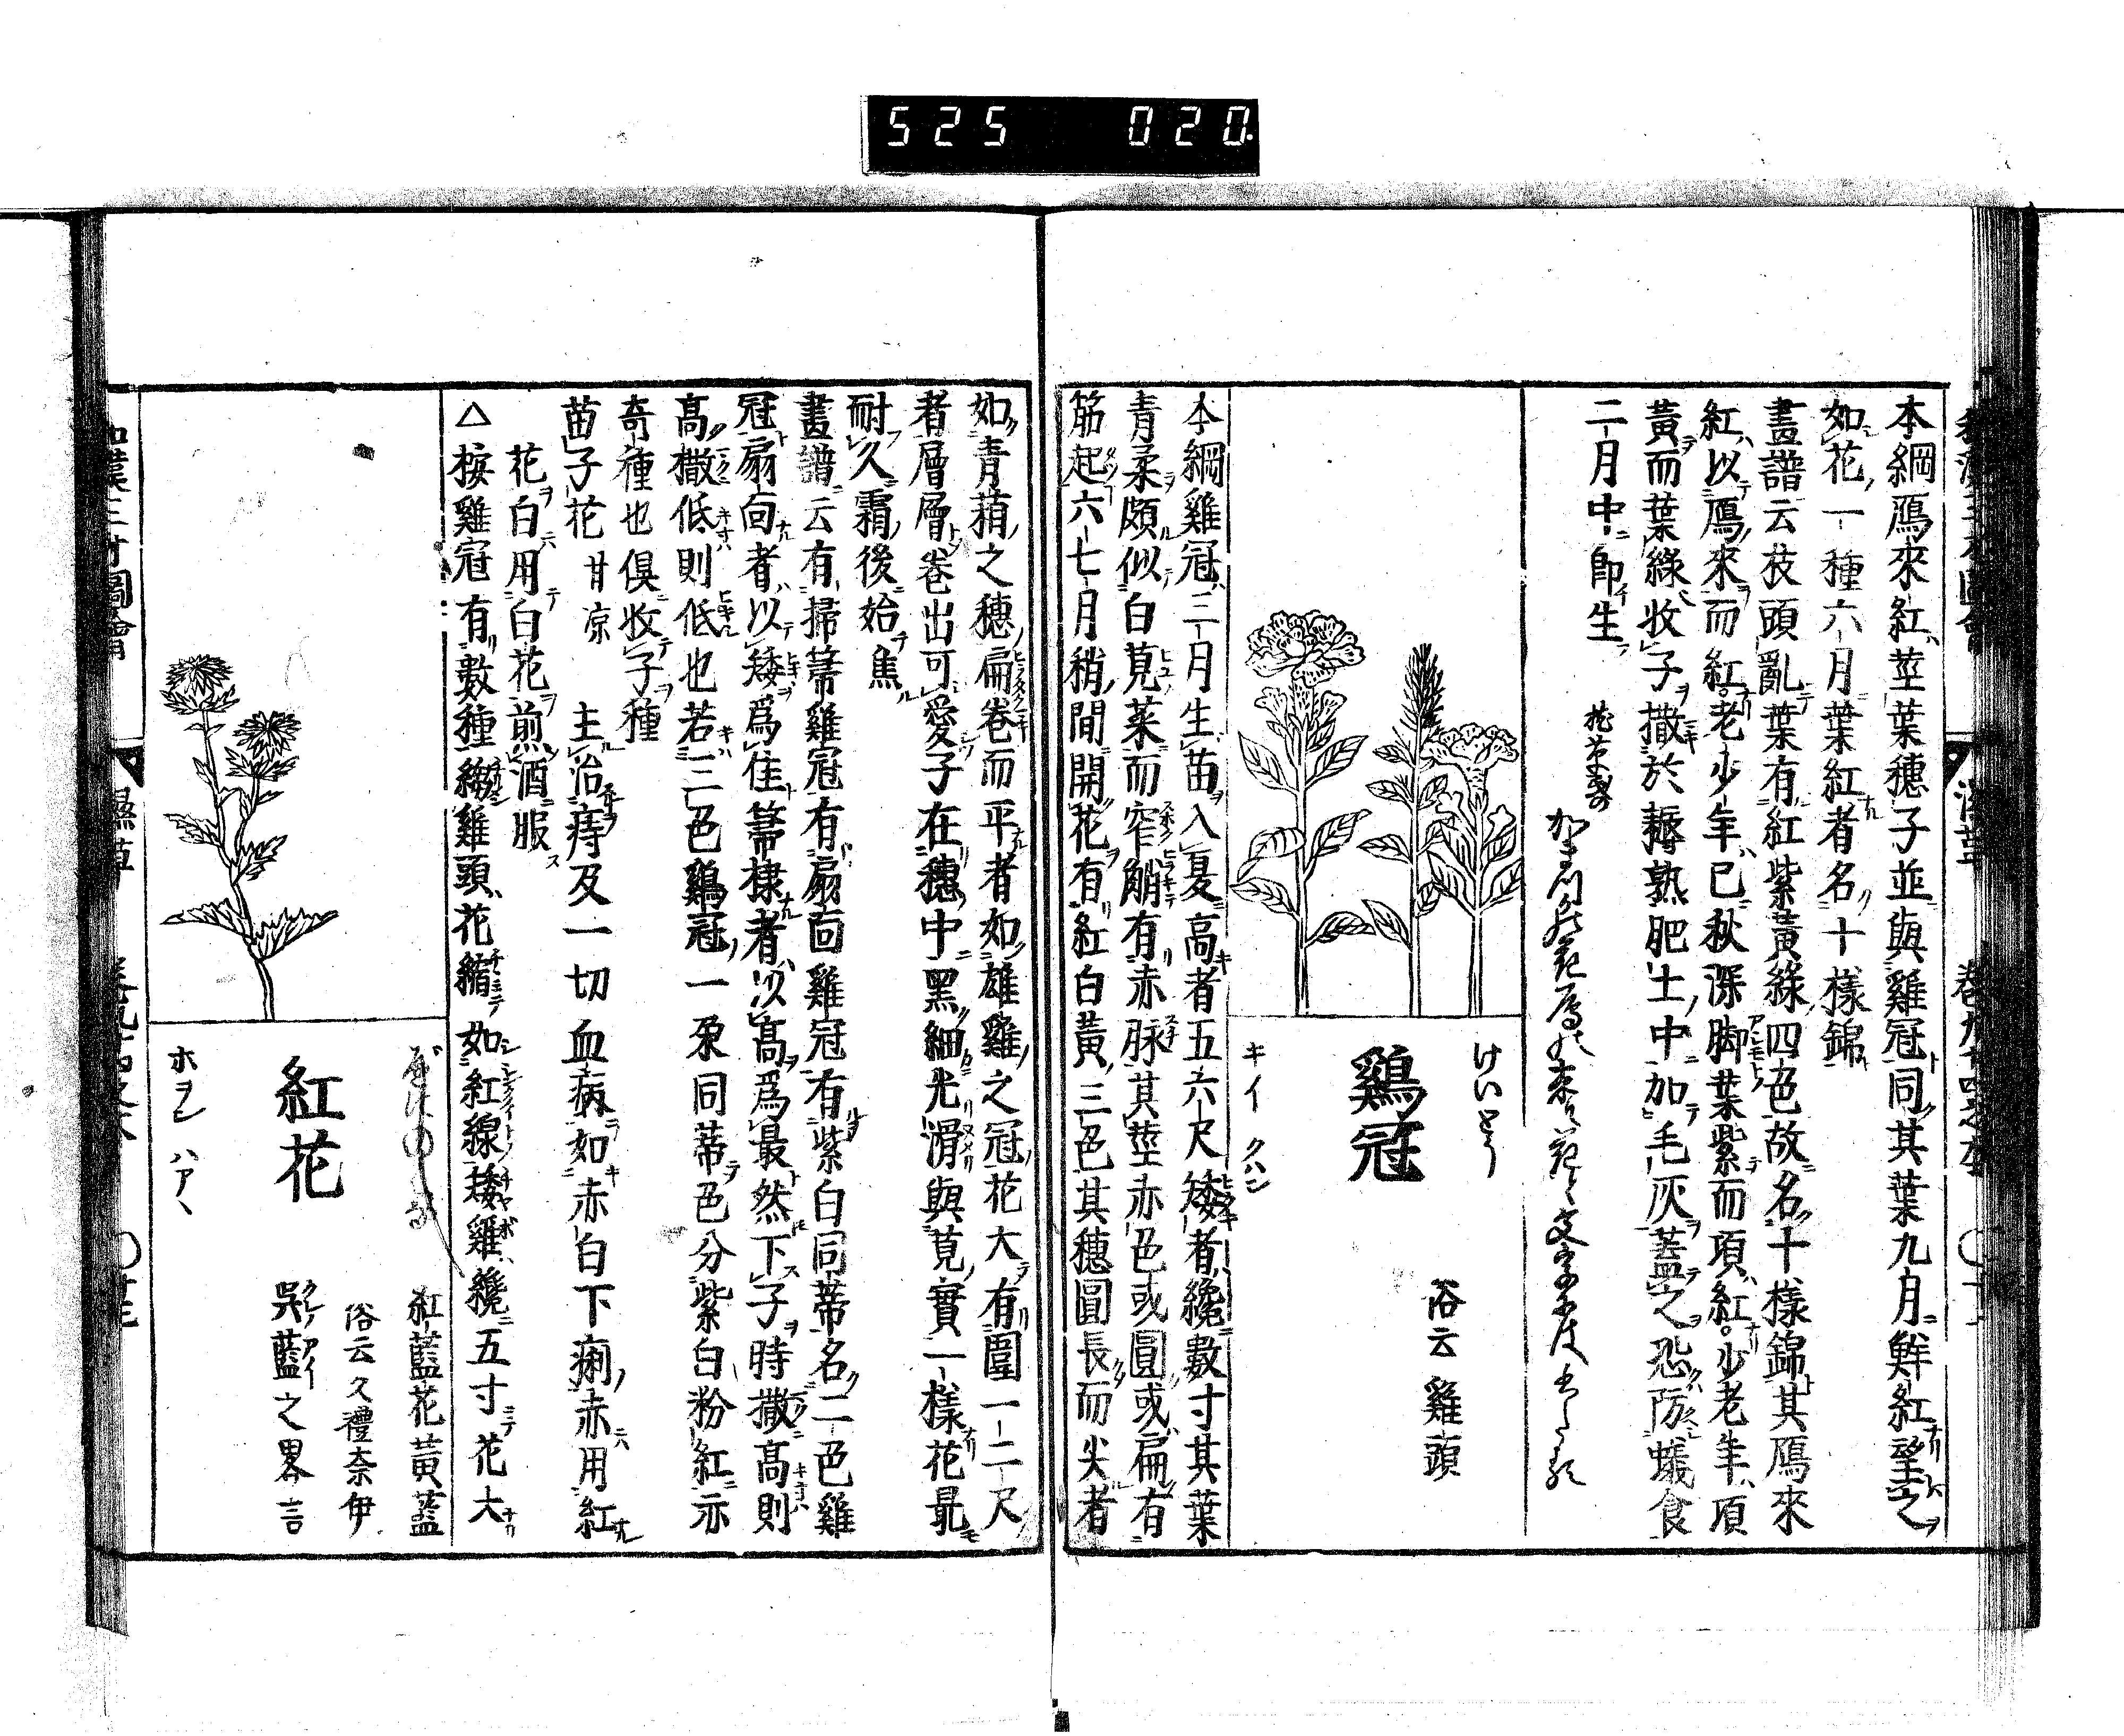 525 020
本綱鴈來紅莖葉穗子並與雞冠同其葉九月鮮紅望之
如花一種六月葉紅者名十樣錦
畫譜云枝頭亂葉有紅紫黃綠四色故名十樣錦其鴈來
紅以鴈來而紅老少年已秋深脚葉紫而項紅少老年項
黃而葉綠收子撒於耨熟肥土中加毛灰蓋之恐防蟻食
二月中卽生
けいとう
鷄冠
キイ クハン
俗云雞頭
本綱雞冠三月生苗入夏高者五六尺矮者纔數寸其葉
青柔頗似白莧菜而窄䚇有赤脉其莖赤色或圓或扁有
筋起六七月稍間開花有紅白黃三色其穗圓長而尖者
如青葙之穗扁卷而平者如雄雞之冠花大有圍一二尺
者層層卷出可愛子在穗中黑細光滑與莧實一樣花最
耐久霜後始焦
畫譜云有掃箒雞冠有扇面雞冠有紫白同蒂名二色雞
冠扇面者以矮爲佳箒棣者以高爲最然下子時撒高則
高撒低則低也若三色鷄冠一朶同蒂色分紫白粉紅亦
奇種也俱收子種
苗子花 甘凉 主治痔及一切血病如赤白下痢赤用紅
花白用白花煎酒服
△按雞冠有數種緻雞頭花縮如紅線矮雞纔五寸花大
紅花
ホヲン ハアヽ
紅藍花 黃藍
俗云久禮奈伊
吳藍之畧言
和漢三才圖會
濕草